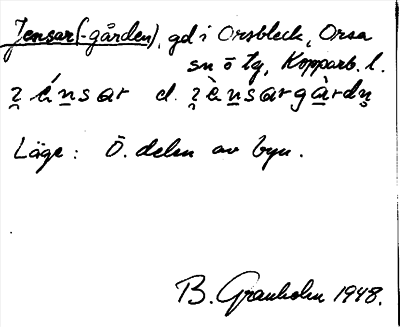 Jensar(-gården), gd i Orsbleck, Orsa
sn ö tg, Kopparb. l.
ʒénsar d. ʒènsargàrdn̥
Läge: Ö. delen av byn.
B. Granholm 1948.